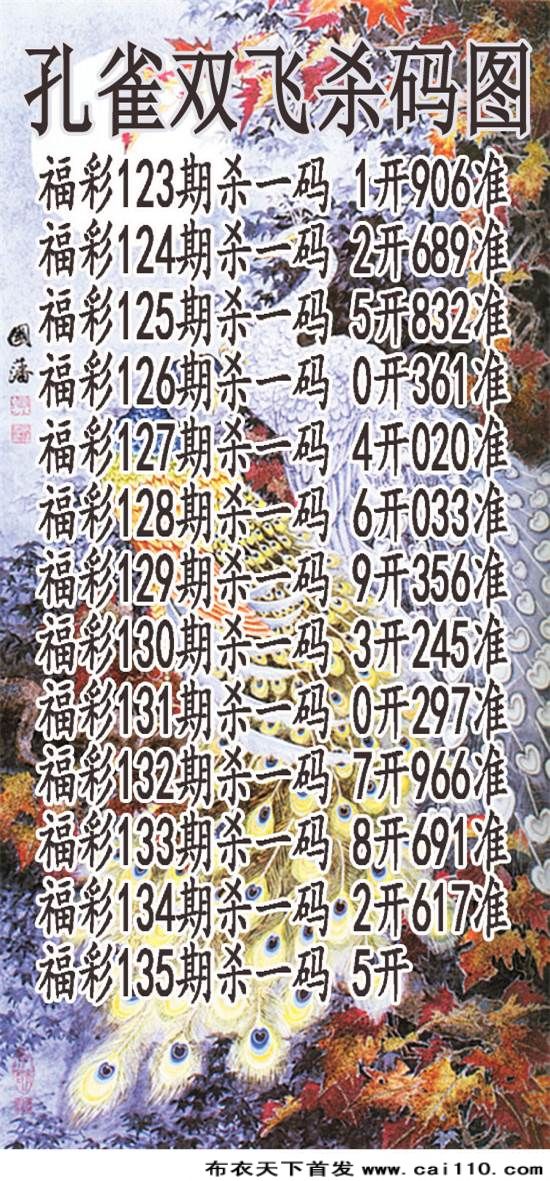 孔雀双飞杀码图
福彩123期杀一码 1开906准
福彩124期杀一码 2开689准
福彩125期杀一码 5开832准
福彩126期杀一码 0开361准
國藩
福彩127期杀一码 4开020准
福彩128期杀一码 6开033准
福彩129期杀一码 9开356准
福彩130期杀一码 3开245准
福彩131期杀一码 0开297准
福彩132期杀一码 7开966准
福彩133期杀一码 8开691准
福彩134期杀一码 2开617准
福彩135期杀一码 5开
布衣天下首发 www.cai110.com